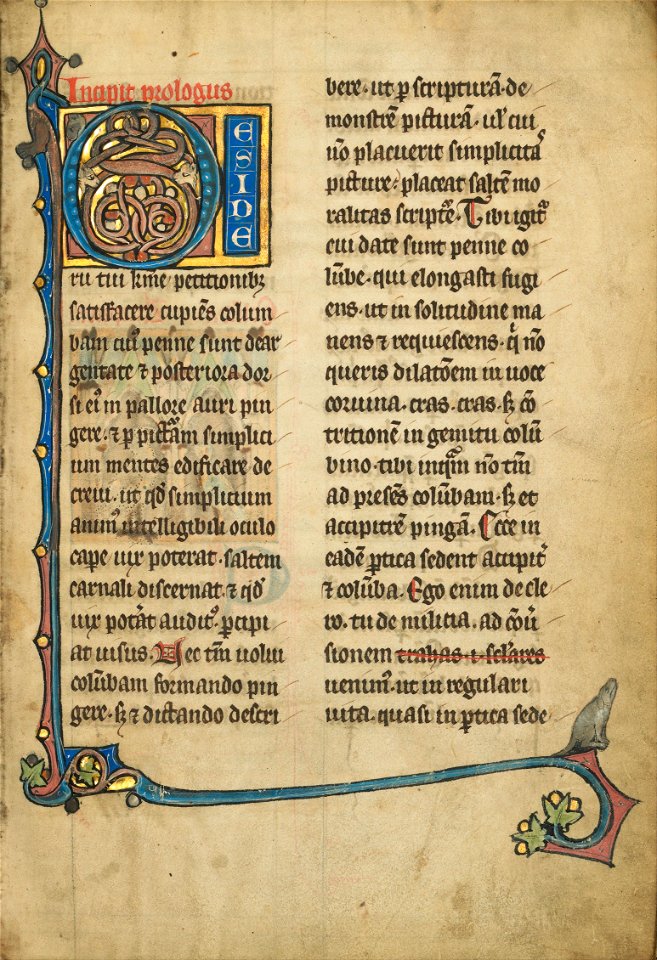 Incipit prologus
DESIDE
rii tui kͥme petitionibꝫ
satisfacere cupiēs colum
bam cuiꝰ penne sunt dear
gentate ⁊ posteriora dor
si eiꝰ in pallore auri pin
gere · ⁊ ꝑ pictᷓam simplici
um mentes edificare de
creui · ut qd̓ simplicium
animꝰ intelligibili oculo
cape uix poterat · saltem
carnali discernat · ⁊ qd̓
uix potāt auditꝰ · ꝑcipi
at uisus · Nec tm̄ uolui
colūbam formando pin
gere · sꝫ ⁊ dictando descri
bere · ut ꝑ scripturā · de
monstrē picturā · ul̓ cui
nō placuerit simplicitᷓa
picture · placeat saltē mo
ralitas scriptᷓe · Tibi igitᷓ
cui date sunt penne co
lūbe · qui elongasti fugi
ens · ut in solitudine ma
nens ⁊ requiescens · qͥ nō
queris dilatōem in uoce
coruina · cras · cras · sꝫ cō
tritionē in gemitu colū
bino · tibi inqᷓm nō tm̄
ad presēs colūbam · sꝫ et
accipitrē pingā · Ecce in
eadē ꝑtica sedent accipitͥ
⁊ colūba · Ego enim de cle
ro · tu de militia · ad cōū̓
sionem trahas · i · sclares
uenimꝰ · ut in regulari
uita · quasi in ꝑtica sede